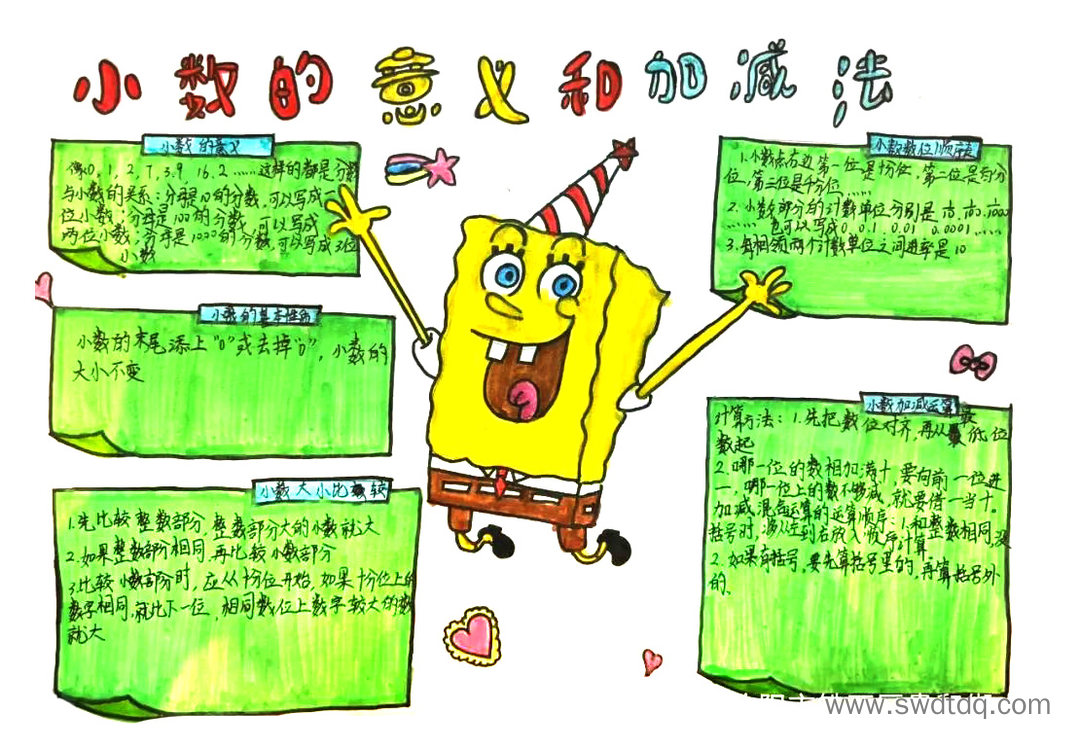 小数的意义和加减法
小数的意义
像0,1,2,7,3.9 16.2……这样的都是分数
与小数的关系:分母是10的分数,可以写成一
位小数;分母是100的分数,可以写成
两位小数,分母是1000的分数,可以写成3位
小数
小数的基本性质
小数的末尾添上"0"或去掉"0",小数的
大小不变
小数大小比较
1.先比较整数部分,整数部分大的小数就大
2.如果整数部分相同,再比较小数部分
3.比较小数部分时,应从十分位开始,如果十分位上的
数字相同,就比下一位,相同数位上数字较大的数
就大
小数数位顺序表
1.小数点右边第一位是十分位,第二位是百分
位,第三位是千分位……
2.小数部分的计数单位分别是
也可以写成0.0.1.0.01 0.0001……
3.每相领两个计数单位之间进率是10
小数加减运算
计算方法:1.先把数位对齐,再从最低位
数起
2.哪一位的数相加满十,要向前一位进
一,哪一位上的数不够减,就要借一当十。
加减混合运算的运算顺序:1.和整数相同,没
括号时,从左到右 顺序计算
2.如果有括号,要先算括号里的,再算括号外
的。
www.swdtdq.com